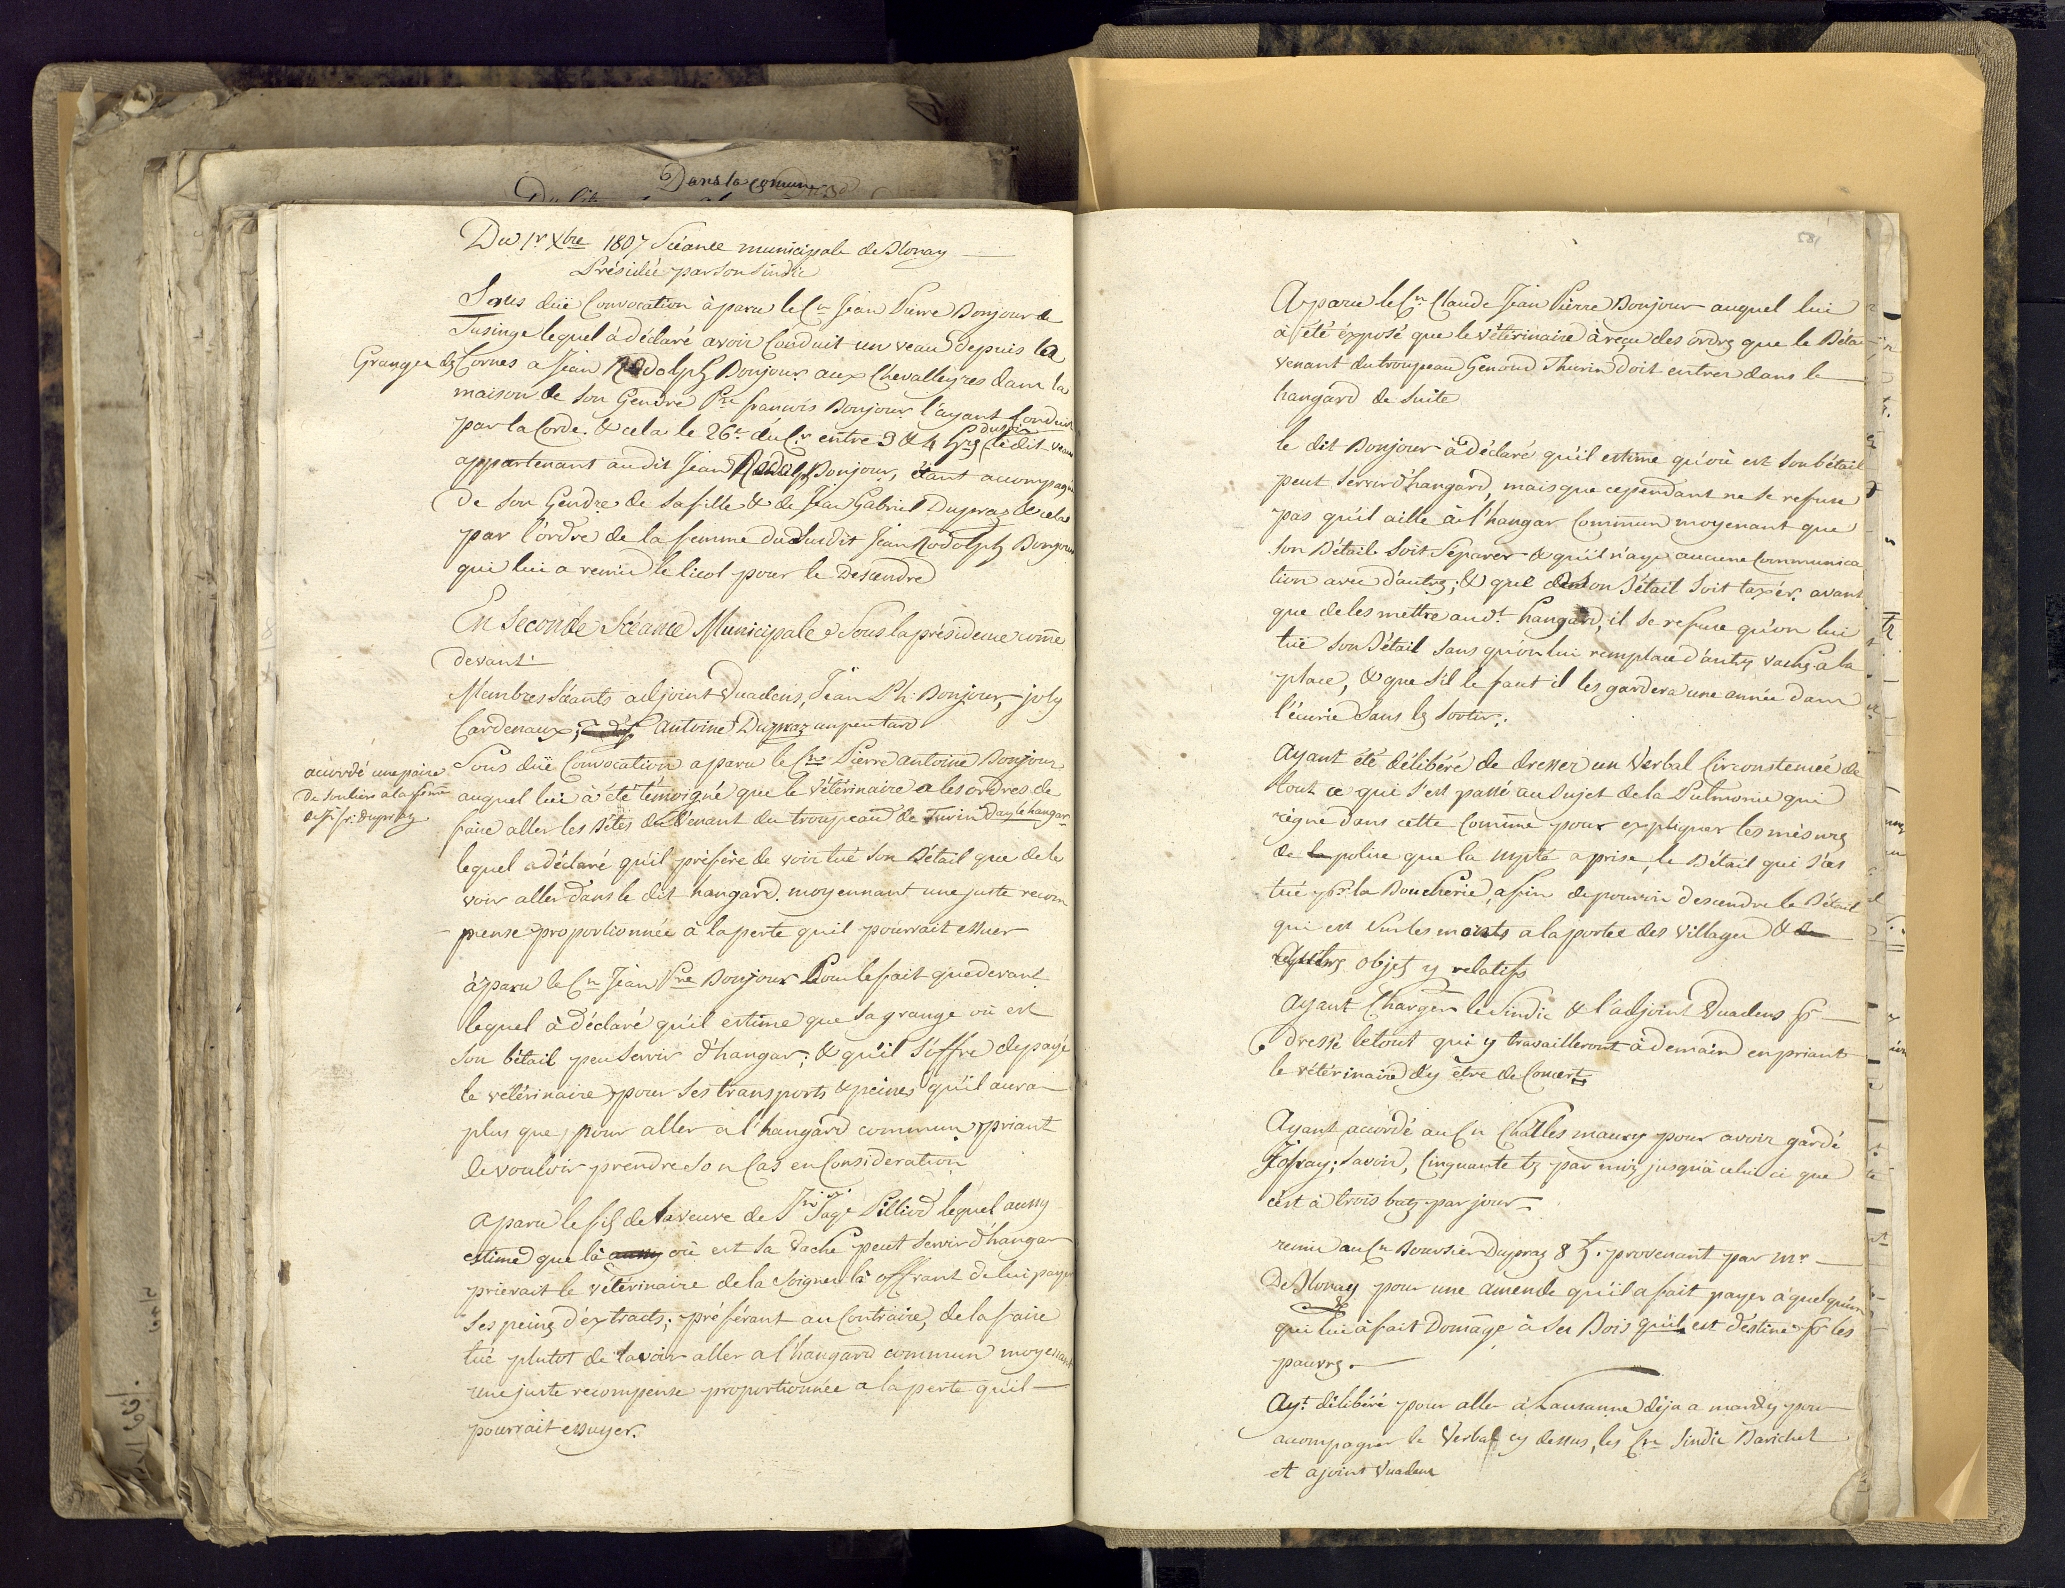 Dans la comune
Du 1r Xbre 1807 Scéance municipale de Blonay
Présidée par son sindic
Sous düe Convocation à paru le Cn Jean Pierre Bonjour de
Tusinge lequel à déclaré avoir Conduit un veau depuis la
Granges des Cornes a Jean Rodolph Bonjour aux Chevalleyres dans la
maison de son Gendre Pre francois Bonjour l'ayant Conduit
par la Corde. & cela le 26e du Ct entre 3 & 4 hrs du soir le dit veau
appartenant au dit Jean Rodolph Bonjour, étant accompagné
de son Gendre de sa fille & de Jean Gabriel Dupraz & cela
par l'ordre de la femme du susdit Jean Rodolph Bonjour
qui lui a remis le licol pour le descendre
En seconde Scéance Municipale Sous la présidence come
devant
Membres Séants adjoint Vuadens, Jean Ph: Bonjour, joly
Cardenaux, Antoine Dupraz un peu tard
accordé une paire
de souliers a la feme
Sous düe Convocation a paru le Cn Pierre antoine Bonjour
auquel lui à été témoigné que le vétérinaire a les ordres de
faire aller les Bêtes venant du troupeau de Turin dans le hangar
lequel a déclaré qu'il préfère de voir tué son Bétail que de le
voir aller dans le dit hangard. moyennant une juste recom
pense proportionnée à la perte qu'il pourrait essuer
à paru le Cn Jean Pre Bonjour Pour le fait que devant
lequel à déclaré qu'il estime que sa grange où est
son bétail peu servir d'hangar; & qu'il s'offre de payé
le vétérinaire pour ses transports & peines qu'il aura
plus que pour aller à l'hangard commun, priant
de vouloir prendre son Cas en Consideration
a paru le fils de la veuve de Jn Jaqe Pilliod lequel aussy
estime que là où est sa vache peut servir d'hangar
prierait le vétérinaire de la soigner là offrant de lui payer
ses peines d'extraits; préférant au Contraire, de la faire
tué plutot de la voir aller a l'hangard commun moyenant
une juste recompense proportionnée a la perte qu'il
pourrait essuyer.
581
A parue le Cn Claude Jean Pierre Bonjour auquel lui
à été éxposé que le vétérinaire à reçu des ordres que le Bétail
venant du troupeau Genoud Thurin doit entrer dans le
hangard de suite
le dit Bonjour à déclaré qu'il estime qu'où est son bétail
peut servir d'hangard, mais que cependant ne se refuse
pas qu'il aille à l'hangar Commun moyenant que
son Bétail soit séparer & qu'il n'aye aucune Communica
tion avec d'autres; & que son Bétail soit taxér. avant
que de les mettre au dt hangard, il se refuse qu'on lui
tüe son Bétail sans qu'on lui remplace d'autres vaches à la
place, & que s'il le faut il les gardera une année dans
l'écurie sans les sortir.
Ayant été délibéré de dresser un Verbal Circonstencié de
tout ce qui s'est passé au sujet de la Pulmonie qui
règne dans cette Comune pour expliquer les mesures
de police que la mplté a prise, le Bétail qui s'est
tué pr. la Boucherie, afin de pouvoir descendre le Bétail
qui est sur les monts a la portée des villages &
objets y relatifs
Ayant Charger le sindic & l'adjoint Vuadens pr
dressé le tout qui y travailleront à demain en priant
le vétérinaire d'y être de Concert
Ayant accordé au Cn Challes maury pour avoir gardé
Josray; savoir, Cinquante bz par mois jusqu'à celui ci que
c'est à trois batz par jour
remis au Cn Boursier Dupraz 8 f. provenant par mr
De Blonay pour une amende qu'il a fait payer à quelqu'un
qui lui à fait Domage à ses Bois qu'il est destiné pr les
pauvres.
Ayt délibéré pour aller à Lausanne déja a mardy pour
acompagner le Verbal cy dessus, les Cns Sindic Barichet
et ajoint Vuadens